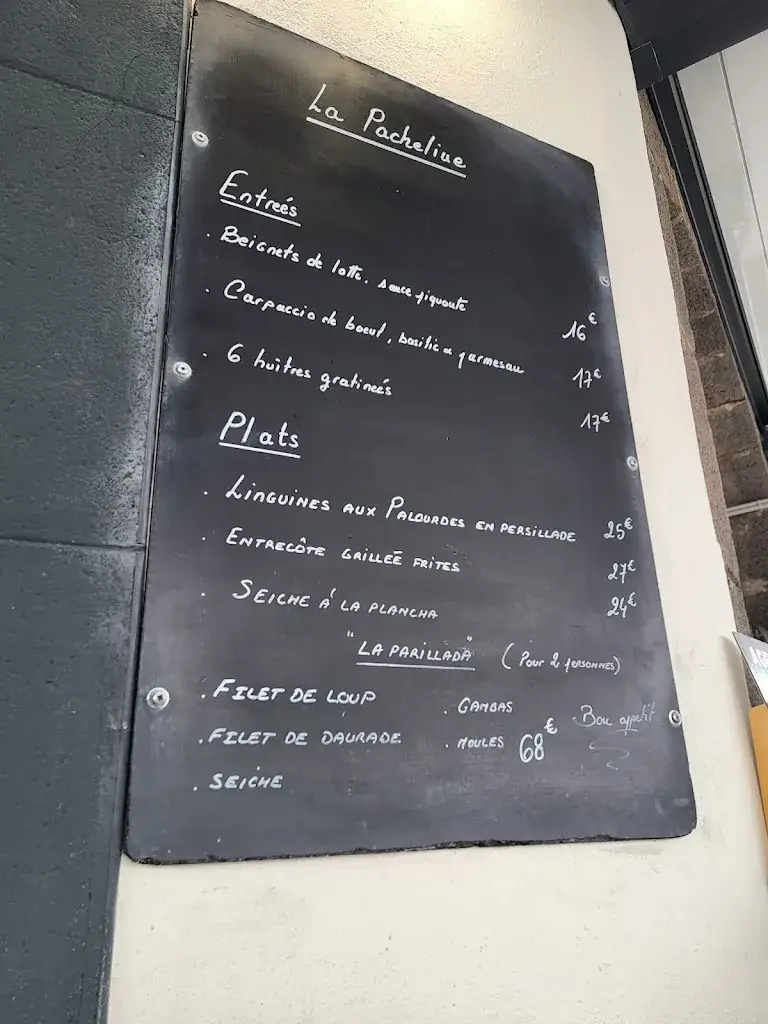 La Pacheline
Entreés
. Beignets de lotte, sauce piquante 16€
. Carpaccio de boeuf, basilic & parmesan 17€
. 6 huîtres gratineés 17€
Plats
. LINGUINES AUX PALOURDES EN PERSILLADE 25€
. ENTRECÔTE GRILLEÉ FRITES 27€
. SEICHE À LA PLANCHA 24€
"LA PARILLADA" (Pour 2 personnes)
. FILET DE LOUP . GAMBAS
. FILET DE DAURADE . MOULES 68€ Bon appetit
. SEICHE